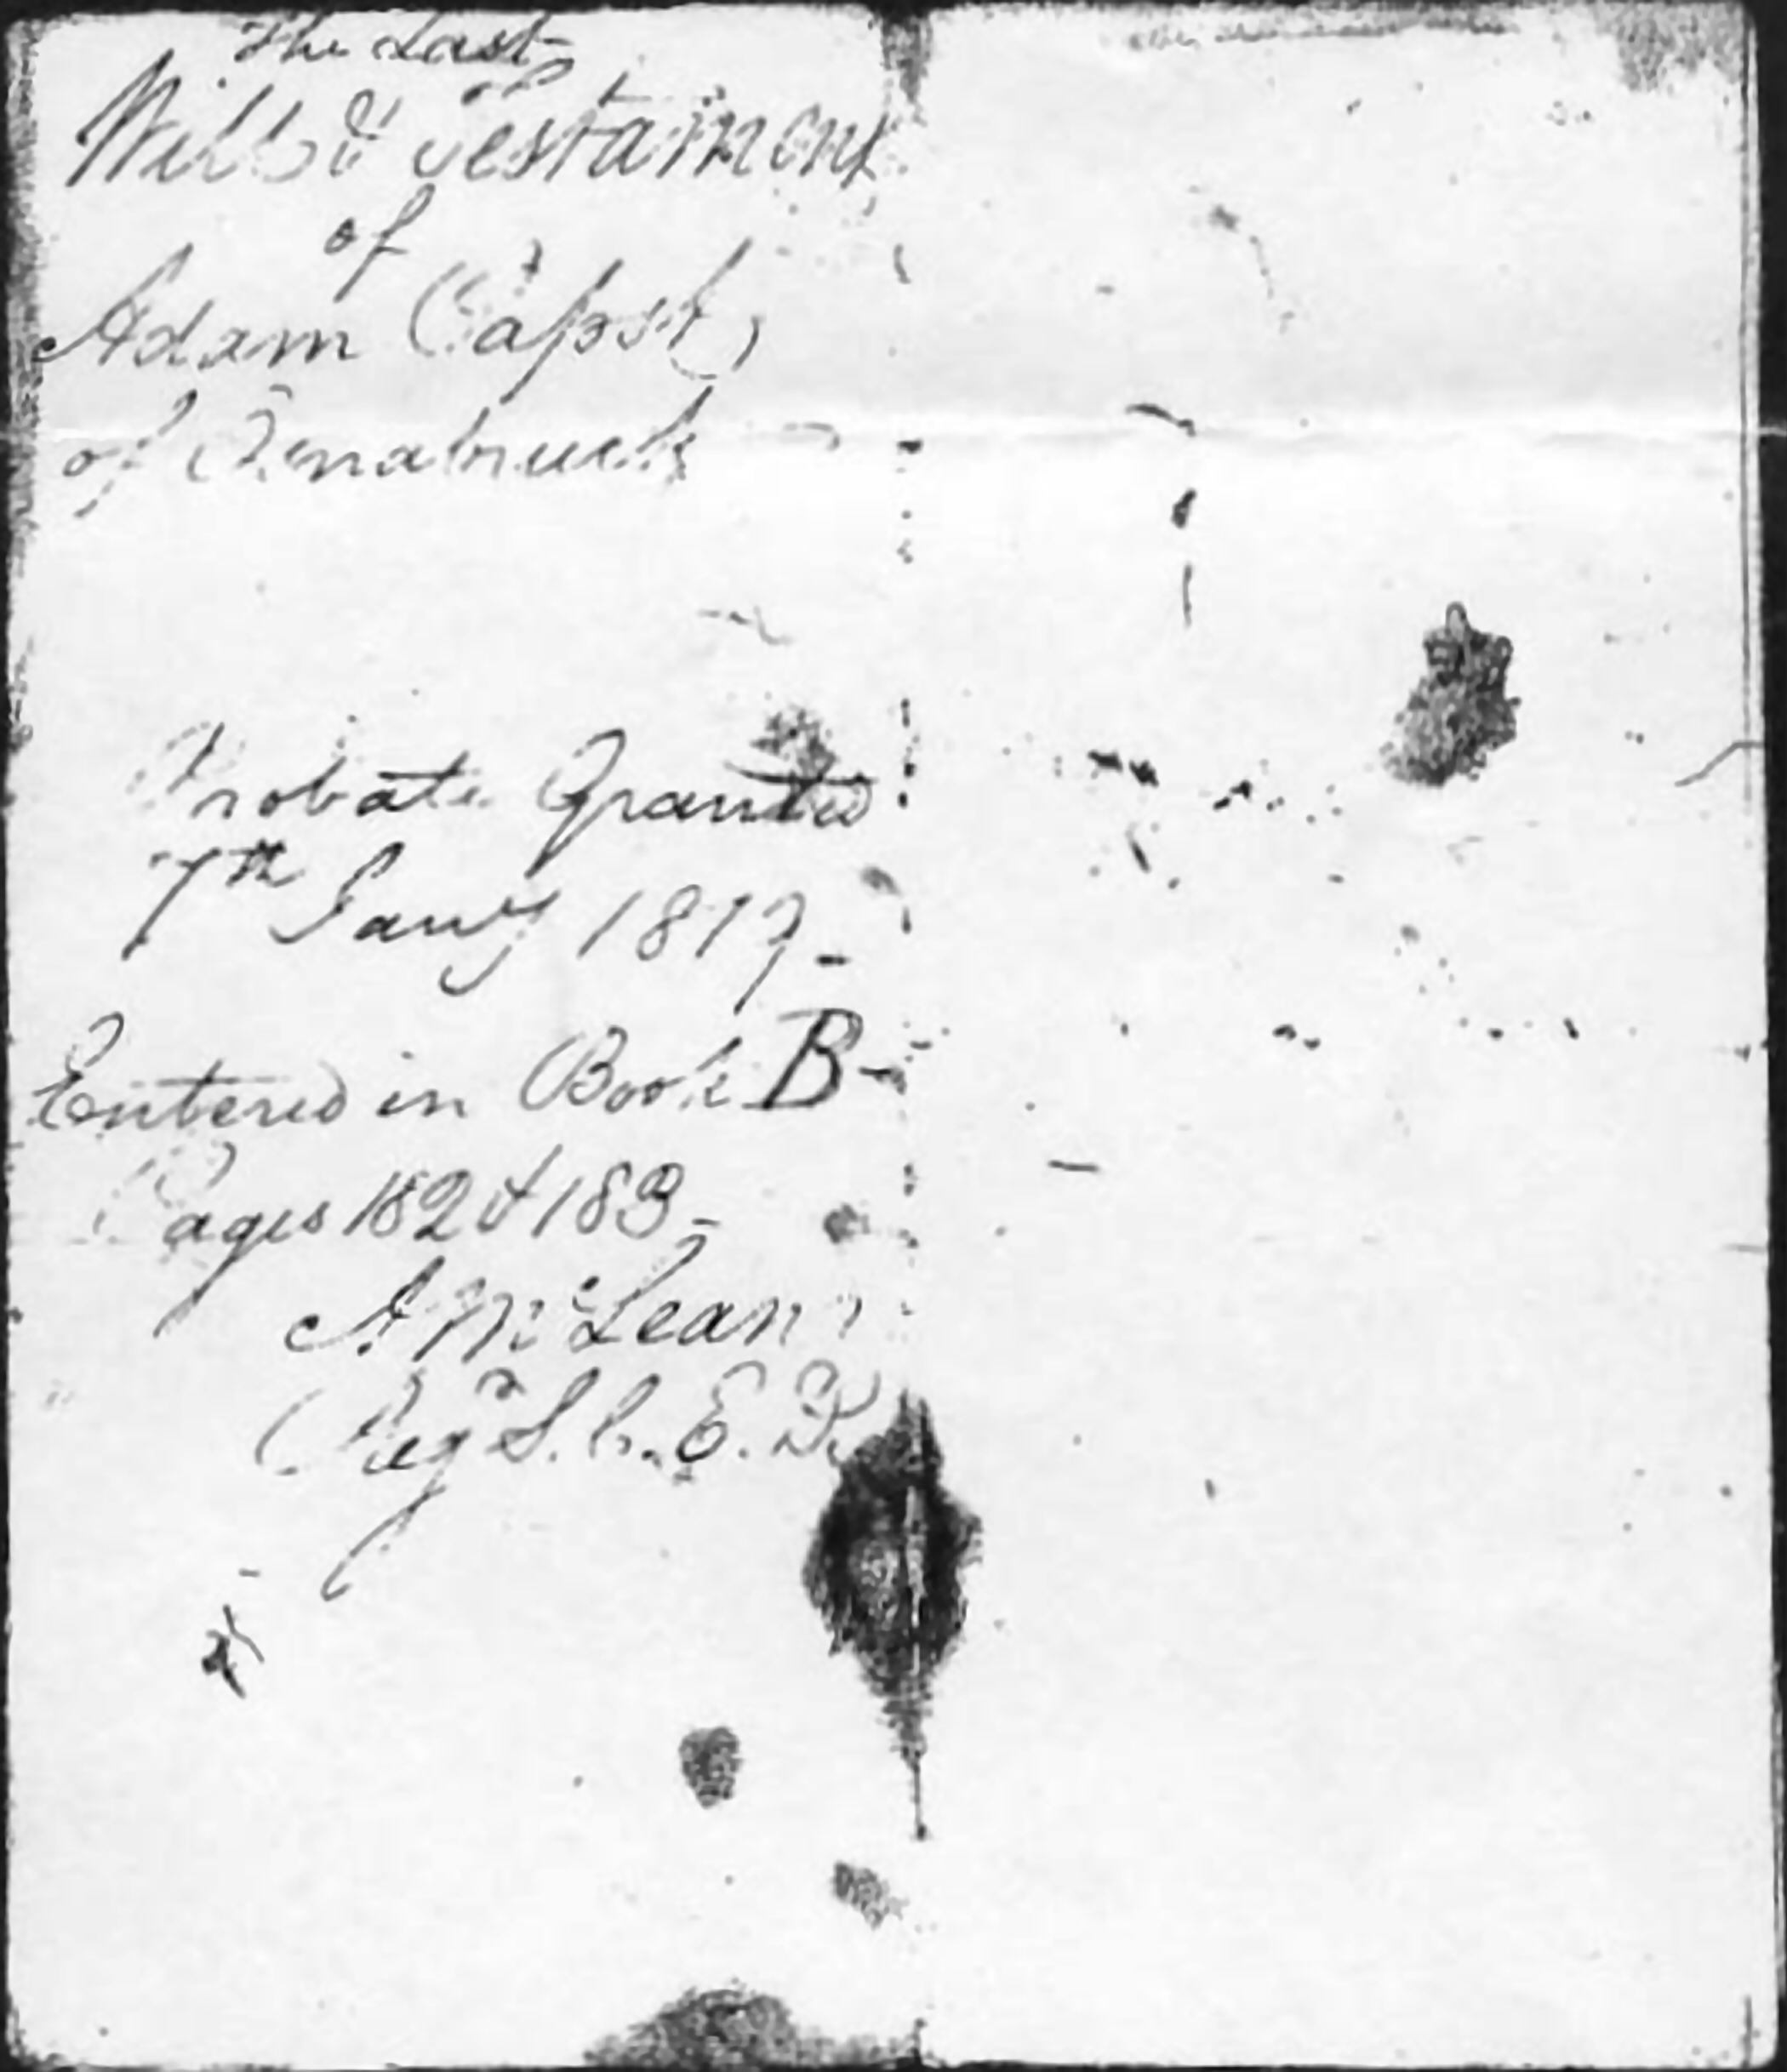 The Last
Will & Testament
of
Adam Papst,
of Osnabruck
Probate Granted
7th Jany 1817-
Entered in Book B-
Pages 182 & 183-
A McLean
Reg S. C. E. D.